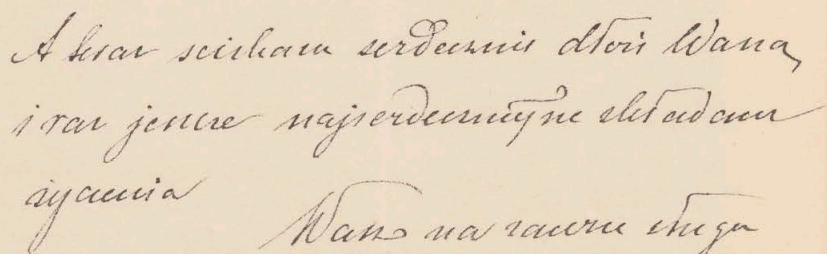 A teraz ściskam serdecznie dłoń Wasza,
i raz jeszcze najserdeczniejsze składam
życzenia
Wasz na zawsze sługa